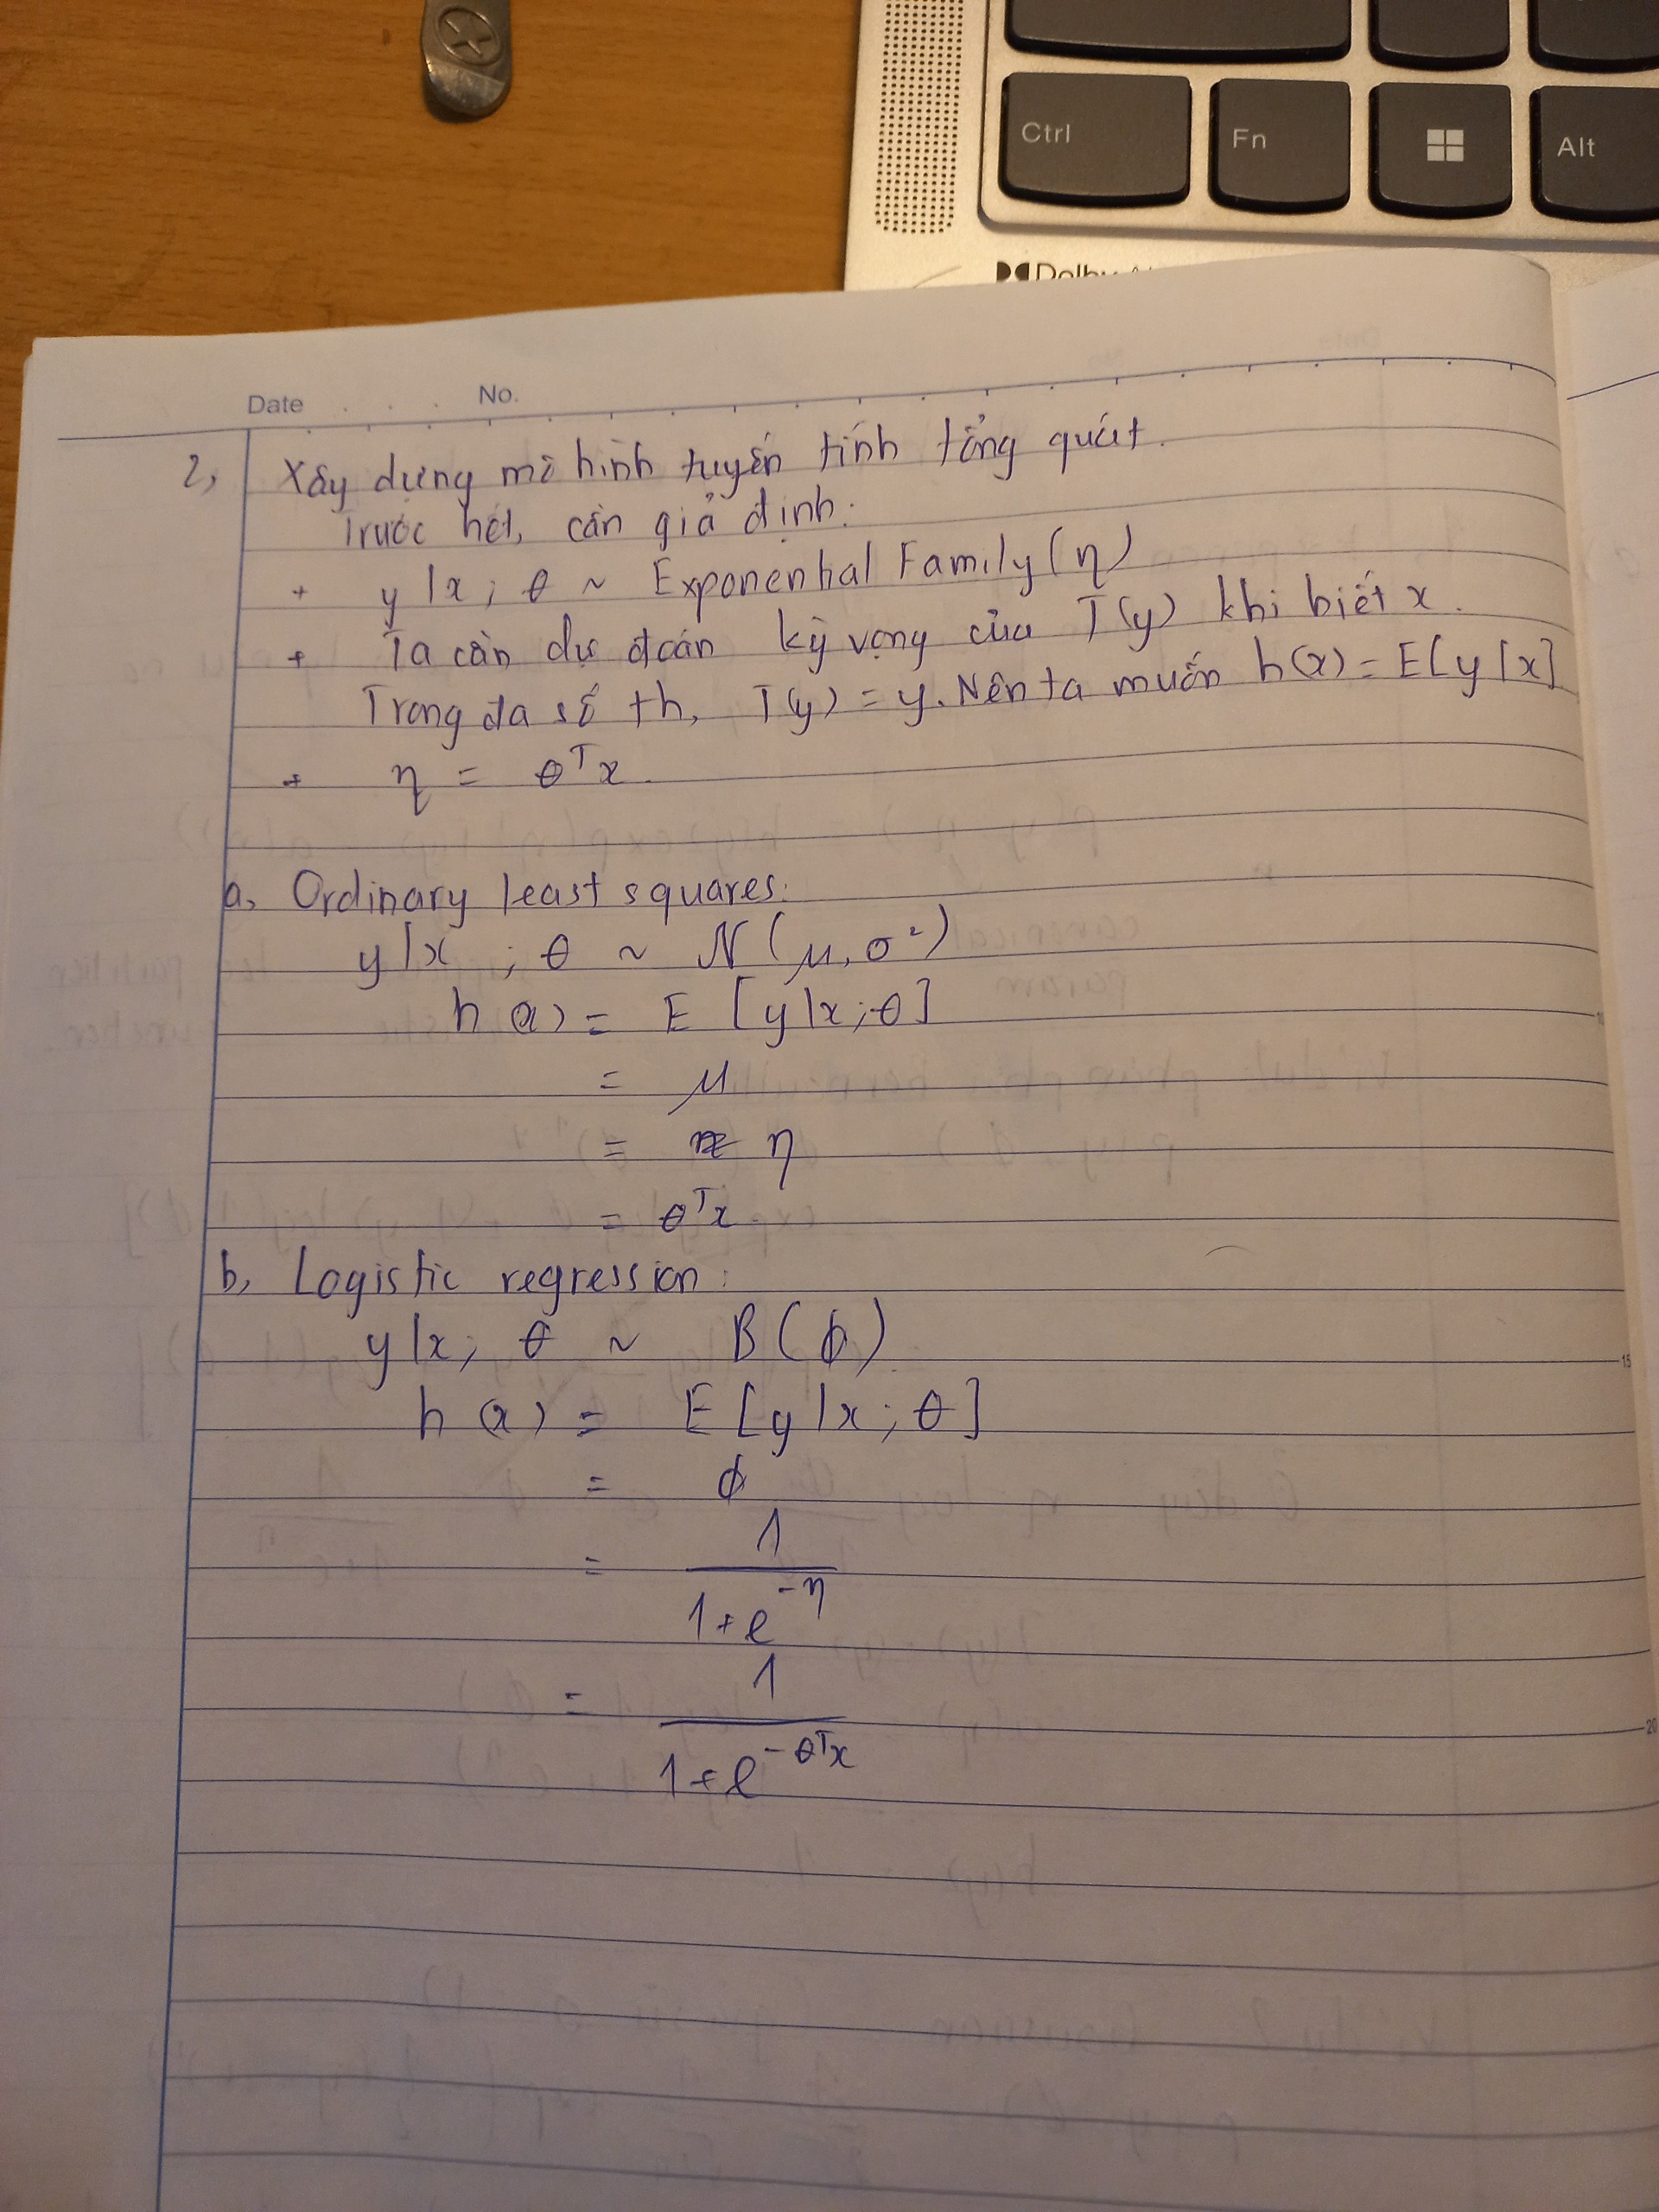 Ctrl
Fn
Alt
Dolby
Date
No.
2, Xây dựng mô hình tuyến tính tổng quát.
Trước hết, cần giả định:
+ y|x; θ ~ Exponential Family(η)
+ Ta cần dự đoán kỳ vọng của T(y) khi biết x.
Trong đa số th, T(y) = y. Nên ta muốn h(x) = E[y|x]
+ η = θᵀx.
a, Ordinary least squares:
y|x ; θ ~ N(μ, σ²)
h(x) = E[y|x;θ]
= μ
= η
= θᵀx.
b, Logistic regression:
y|x; θ ~ B(ϕ)
h(x) = E[y|x; θ]
= ϕ
= 1 / (1+e^(-η))
= 1 / (1+e^(-θᵀx))
15
20